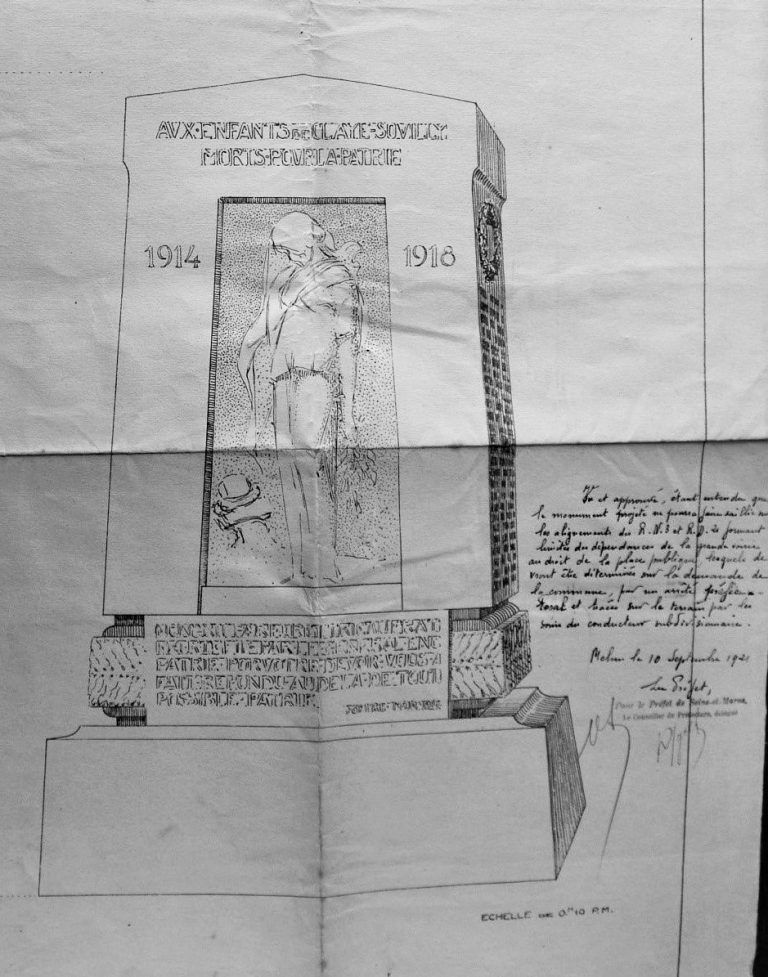 AVX·ENFANTS DE CLAYE-SOVILLY
MORTS·POVR·LA·PATRIE
1914 1918
PATRIE POVR VOTRE DEVOIR VOVS A
FAIT REPONDV AV DELA DE TOVT
POSSIBLE PATRIE
Vu et approuvé, étant entendu que
le monument projeté ne pourra faire saillie sur
les alignements du R.N.3 et formant
limites des dépendances de la grande voirie
au droit de la place publique, lesquels de
vront être déterminés sur la demande de
la commune, par un arrêté préfec-
toral et tracés sur le terrain par les
soins du conducteur subdivisionnaire.
Melun le 10 Septembre 1921
Le Préfet,
Pour le Préfet de Seine-et-Marne,
Le Conseiller de Préfecture, délégué
ECHELLE DE 0.ᵐ10 P.M.